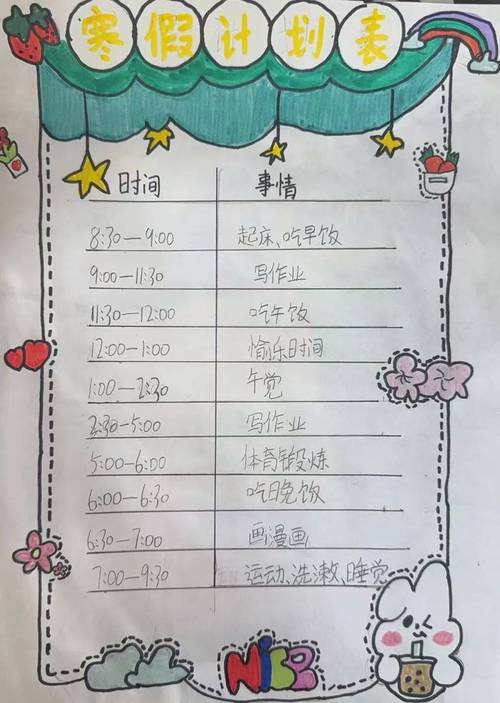 寒假计划表
时间 事情
8:30—9:00 起床、吃早饭
9:00—11:30 写作业
11:30—12:00 吃午饭
12:00—1:00 愉乐时间
1:00—2:30 午觉
2:30—5:00 写作业
5:00—6:00 体育锻炼
6:00—6:30 吃晚饭
6:30—7:00 画漫画
7:00—9:30 运动、洗漱、睡觉
NICE